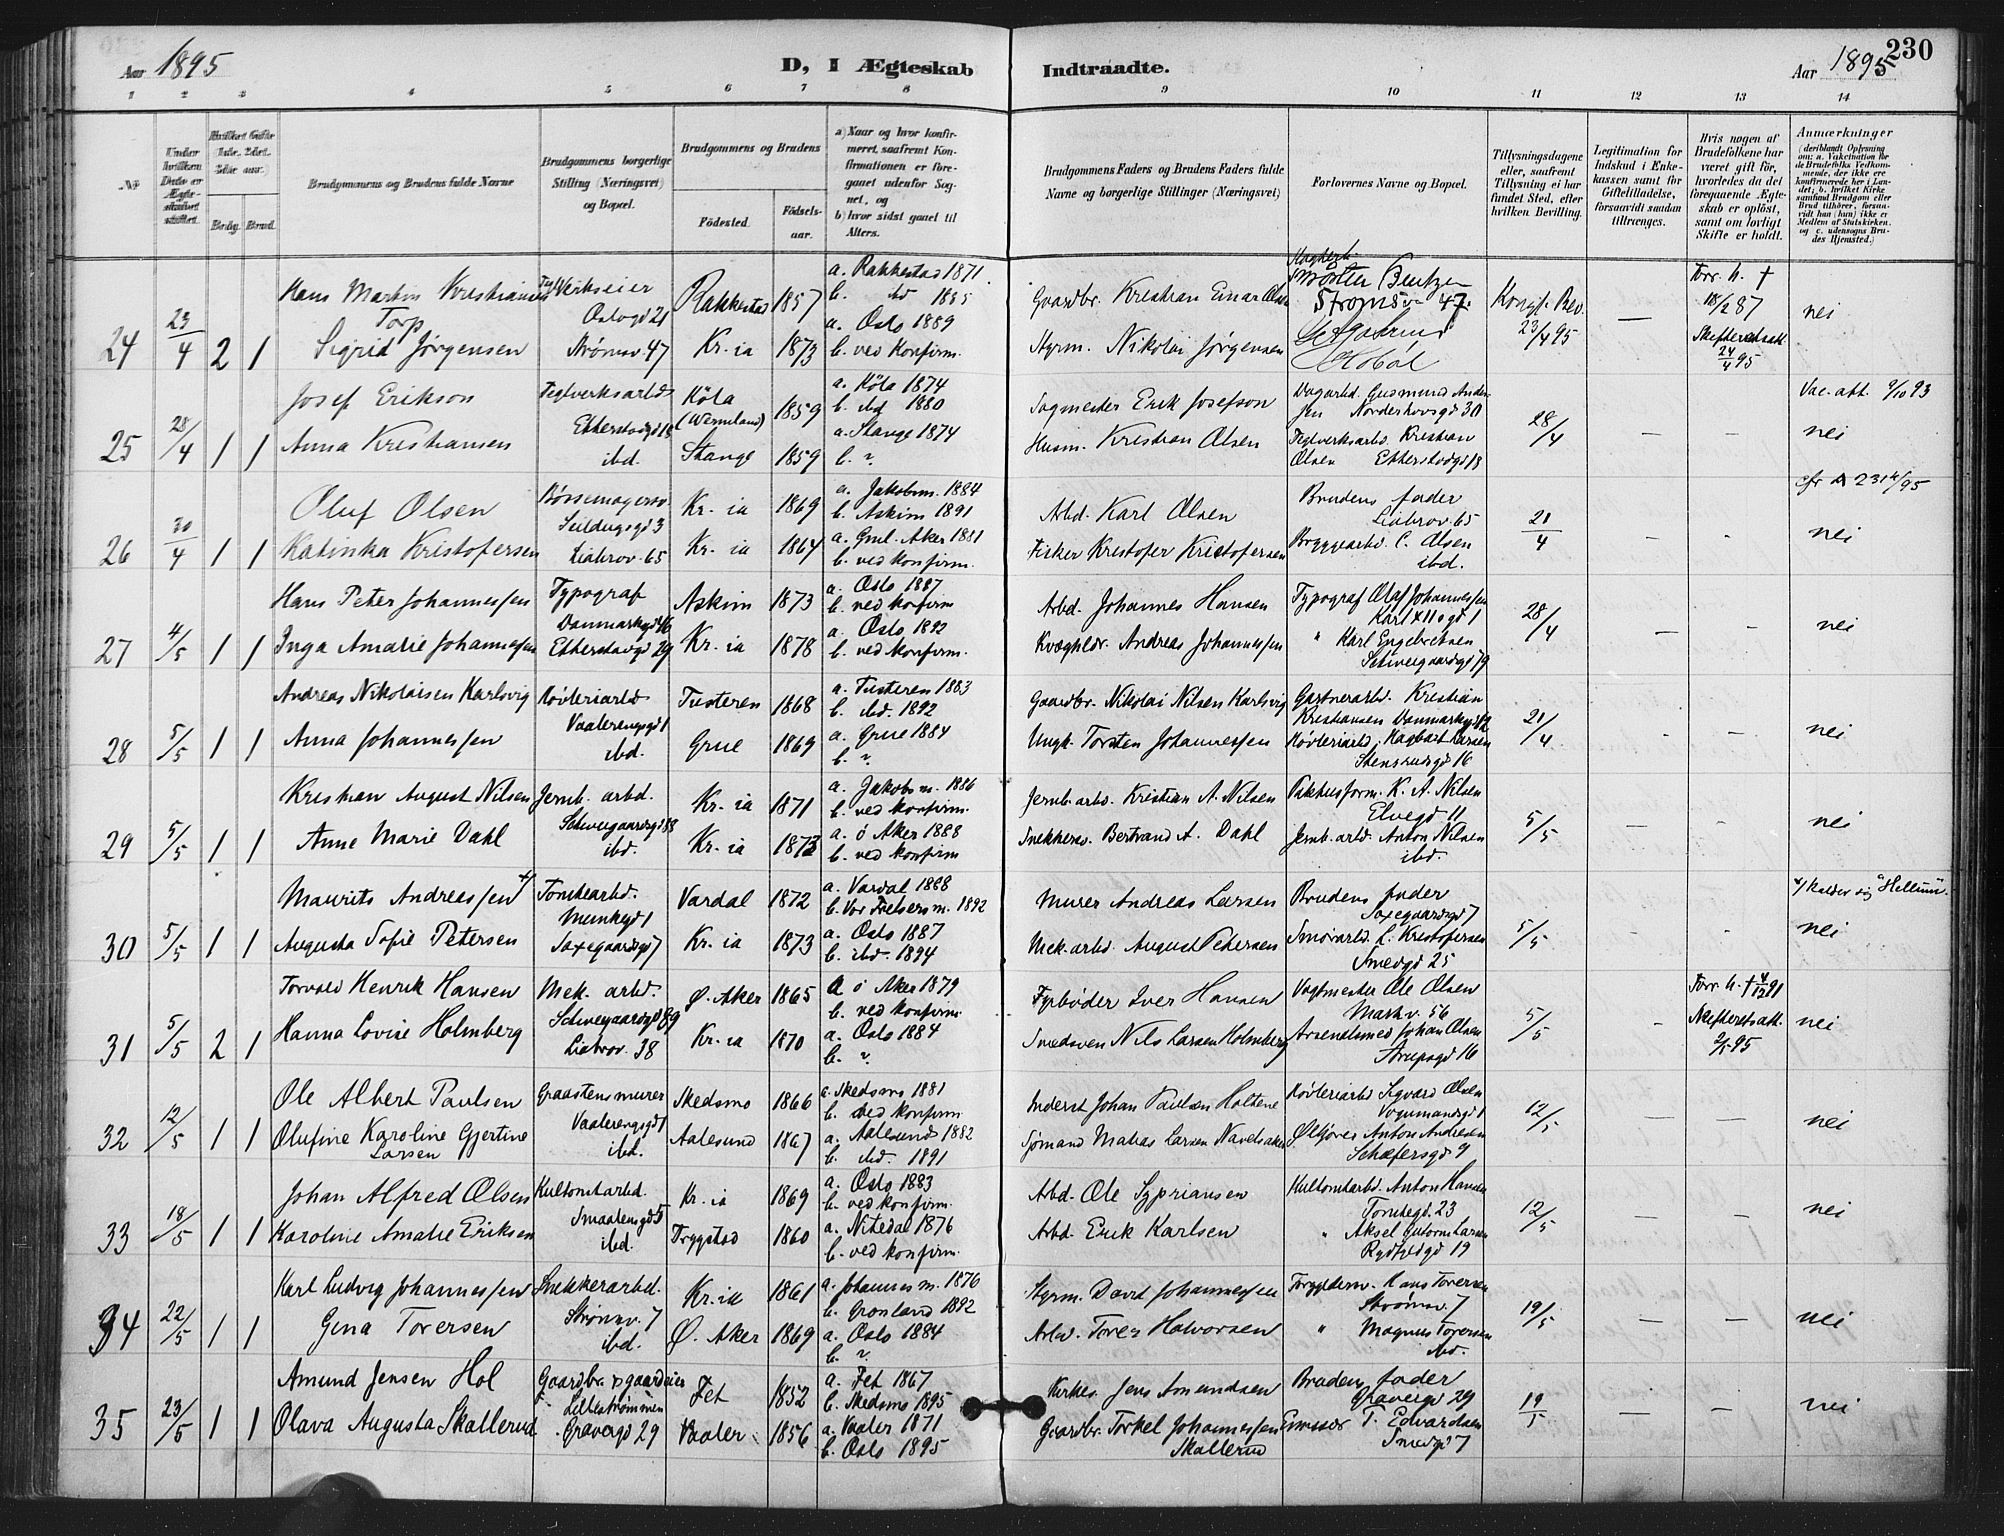 Aar 1895
D, I Ægteskab Indtraadte.
Aar 1895
230
1 2 3 4 5 6 7 8 9 10 11 12 13 14
No.
Under hvilken Dato er Ægteskabet stiftet.
Hvilket Gifte (1ste, 2det, 3die osv.
Brudg. Brud.
Brudgommens og Brudens fulde Navne
Brudgommens borgerlige Stilling (Næringsvei) og Bopæl.
Brudgommens og Brudens
Födested.
Födsels-aar.
a) Naar og hvor konfirmeret, saafremt Konfirmationen er foregaaet udenfor Sognet, og
b) hvor sidst gaaet til Alters.
Brudgommens Faders og Brudens Faders fulde Navne og borgerlige Stillinger (Næringsvei)
Forlovernes Navne og Bopæl.
Tillysningsdagene eller, saafremt Tillysning ei har fundet Sted, efter hvilken Bevilling.
Legitimation for Indskud i Enkekassen samt for Giftetilladelse, forsaavidt saadan tiltrænges.
Hvis nogen af Brudefolkene har været gift for, hvorledes da det foregaaende Ægteskab er oplöst, samt om lovligt Skifte er holdt.
Anmærkninger (deriblandt Oplysning om: a. Vakcination for de Brudefolks Vedkommende, der ikke ere konfirmerede her i Landet; b. hvilket Kirkesamfund Brudgom eller Brud tilhörer, forsaavidt han (hun) ikke er Medlem af Statskirken, og c. udensogns Brudes Hjemsted.)
24 23/4 2 1
Hans Martin Kristiansen Torp Verkseier Oslogd 21 Rakkestad 1857 a. Rakkestad 1871. b. ibd 1895 Gaardbr. Kristian Einar Olsen Morten Bentzen Strømsv 47 Kongl. Bev. 23/4 95 — Forr. h. † 18/2 87 nei
Sigrid Jørgensen Strømsv 47 Kr.ia 1873 a. Oslo 1889 b. ved Konfirm. Styrm. Nikolai Jørgensen Skifteretsatt. 24/4 95
25 28/4 1 1
Josef Erikson Teglverksarbd Etterstadgd 18 Köla (Wermland) 1859 a. Köla 1874 b. ibd 1880 Sagmester Erik Josefson Dagarbd. Gusmund Andersen Norderhovsgd 30 28/4 — — Vac. att. 9/10 93
Anna Kristiansen ibd. Stange 1859 a. Stange 1874 b. ? Husm. Kristian Olsen Teglverksarb. Kristian Olsen Etterstadgd 18 nei
26 30/4 1 1
Oluf Olsen Børsemagersv Seildugsgd 3 Kr.ia 1869 a. Jakobsm. 1884 b. Askim 1891 Arbd. Karl Olsen Brudens fader Liabrov. 65 21/4 - - cfr 231 4/95
Katinka Kristofersen Liabrov. 65 Kr.ia 1864 a. Gml. Aker 1881 b. ved konfirm. Fisker Kristofer Kristofersen Bryggearbd C. Olsen ibd. nei
27 4/5 1 1
Hans Peter Johannessen Typograf Danmarksgd 46 Askim 1873 a. Oslo 1887 b. ved konfirm Arbd. Johannes Hansen Typograf Olaf Johannessen Karl XII s gd 1 28/4 — — nei
Inga Amalie Johannessen Etterstadgd 29 Kr.ia 1878 a. Oslo 1892 b. ved konfirm. Kvæghdlr. Andreas Johannessen " Karl Engebretsen Schweigaardsgd 79
28 5/5 1 1
Andreas Nikolaisen Karlsvig Høvleriarbd Vaalerengsgd 1 Tusteren 1868 a. Tusteren 1883 b. ibd. 1892 Gaardbr. Nikolai Nilsen Karlsvig Gartnerarbd. Kristian Kristiansen Danmarksgd 12 21/4 - - nei
Anna Johannessen ibd. Grue 1869 a. Grue 1884 b. ? Ungk. Torsten Johannessen Høvleriarbd. Hagbart Larsen Stensrudsgd 16
29 5/5 1 1
Kristian August Nilsen Jernb. arbd. Schweigaardsgd 88 Kr.ia 1871 a. Jakobs m. 1886 b. ved konfirm. Jernb. arbd. Kristian A. Nilsen Pakhusform. K. A. Nilsen Elvegd 11 5/5 — — nei
Anne Marie Dahl ibd. Kr.ia 1873 a. ö Aker 1888 b. ved konfirm Snekkersv. Bertrand A. Dahl Jernb. arbd. Anton Nilsen ibd.
30 5/5 1 1
Maurits Andreassen x/ Tomtearbd. Munkegd 1 Vardal 1872 a. Vardal 1888 b. Vor Frelsers m. 1892 Murer Andreas Larsen Brudens fader Saxegaardsgd 7 5/5 - - x/ kalder sig "Hellum".
Augusta Sofie Petersen Saxegaardsgd 7 Kr.ia 1873 a. Oslo 1887 b. ibd. 1894 Mek. arbd. August Petersen L. Kristofersen Smedgd 25 nei
31 5/5 2 1
Torvald Henrik Hansen Mek. arbd. Schweigaardsgd 89 Ø. Aker 1865 a ö Aker 1879 b. ved konfirm. Fyrbøder Iver Hansen Vogtmester Ole Olsen Markv. 56 5/5 - Forr. h. † 4/12 91 nei
Hanna Lovise Holmberg Liabrov. 38 Kr.ia 1870 a. Oslo 1884 b. ? Smedsven Nils Larsen Holmberg Johan Olsen Arupsgd 16 Skifteretsatt. 2/5 95
32 12/5 1 1
Ole Albert Paulsen Graastensmurer Vaalerengsgd 1 Skedsmo 1866 a. Skedsmo 1881 b. ved konfirm Inderst Johan Paulsen Holtene Høvleriarbd Sigvard Olsen Vognmandsgd 1 12/5 — — nei
Olufine Karoline Gjertine Larsen ibd. Aalesund 1867 a. Aalesund 1882 b. ibd. 1891 Sjømand Matias Larsen Anton Andresen Schæfersgd 9
33 18/5 1 1
Johan Alfred Olsen Kultomtarbd. Smaalensgd 5 Kr.ia 1869 a. Oslo 1883 b. ved konfirm. Arbd. Ole Sypriansen Kultomtarbd. Anton Hansen Tomtegd. 23 12/5 — — nei
Karoline Amalie Eriksen ibd. Trygstad 1860 a. Nitedal 1876 b. ved konfirm. Arbd. Erik Karlsen " Aksel Gutorm Larsen 19
34 22/5 1 1
Karl Ludvig Johannessen Snekkerarbd. Strømsv. 7 Kr.ia 1861 a. Johannes m. 1876 b. Grønland 1892 Styrm. David Johannessen Hans Toresen Strømsv. 7 19/5 — — nei
Gina Toresen ibd. Ø. Aker 1869 a. Oslo 1884 b. ? Arbd. Torer Halvorsen " Magnus Toresen ibd.
35 23/5 1 1
Amund Jensen Hol Gaardbr. p gaardeier Lillestrømmen Fet 1852 a. Fet 1867 b. Skedsmo 1895 Kirkes. Jens Amundsen Brudens fader Gravergd 29 19/5 — — nei
Olava Augusta Skallerud Gravergd 29 Vaaler 1856 a. Vaaler 1871 b. Oslo 1895 Gaardbr. Torkel Johannessen Skallerud T. Edvardsen Smedgd 7